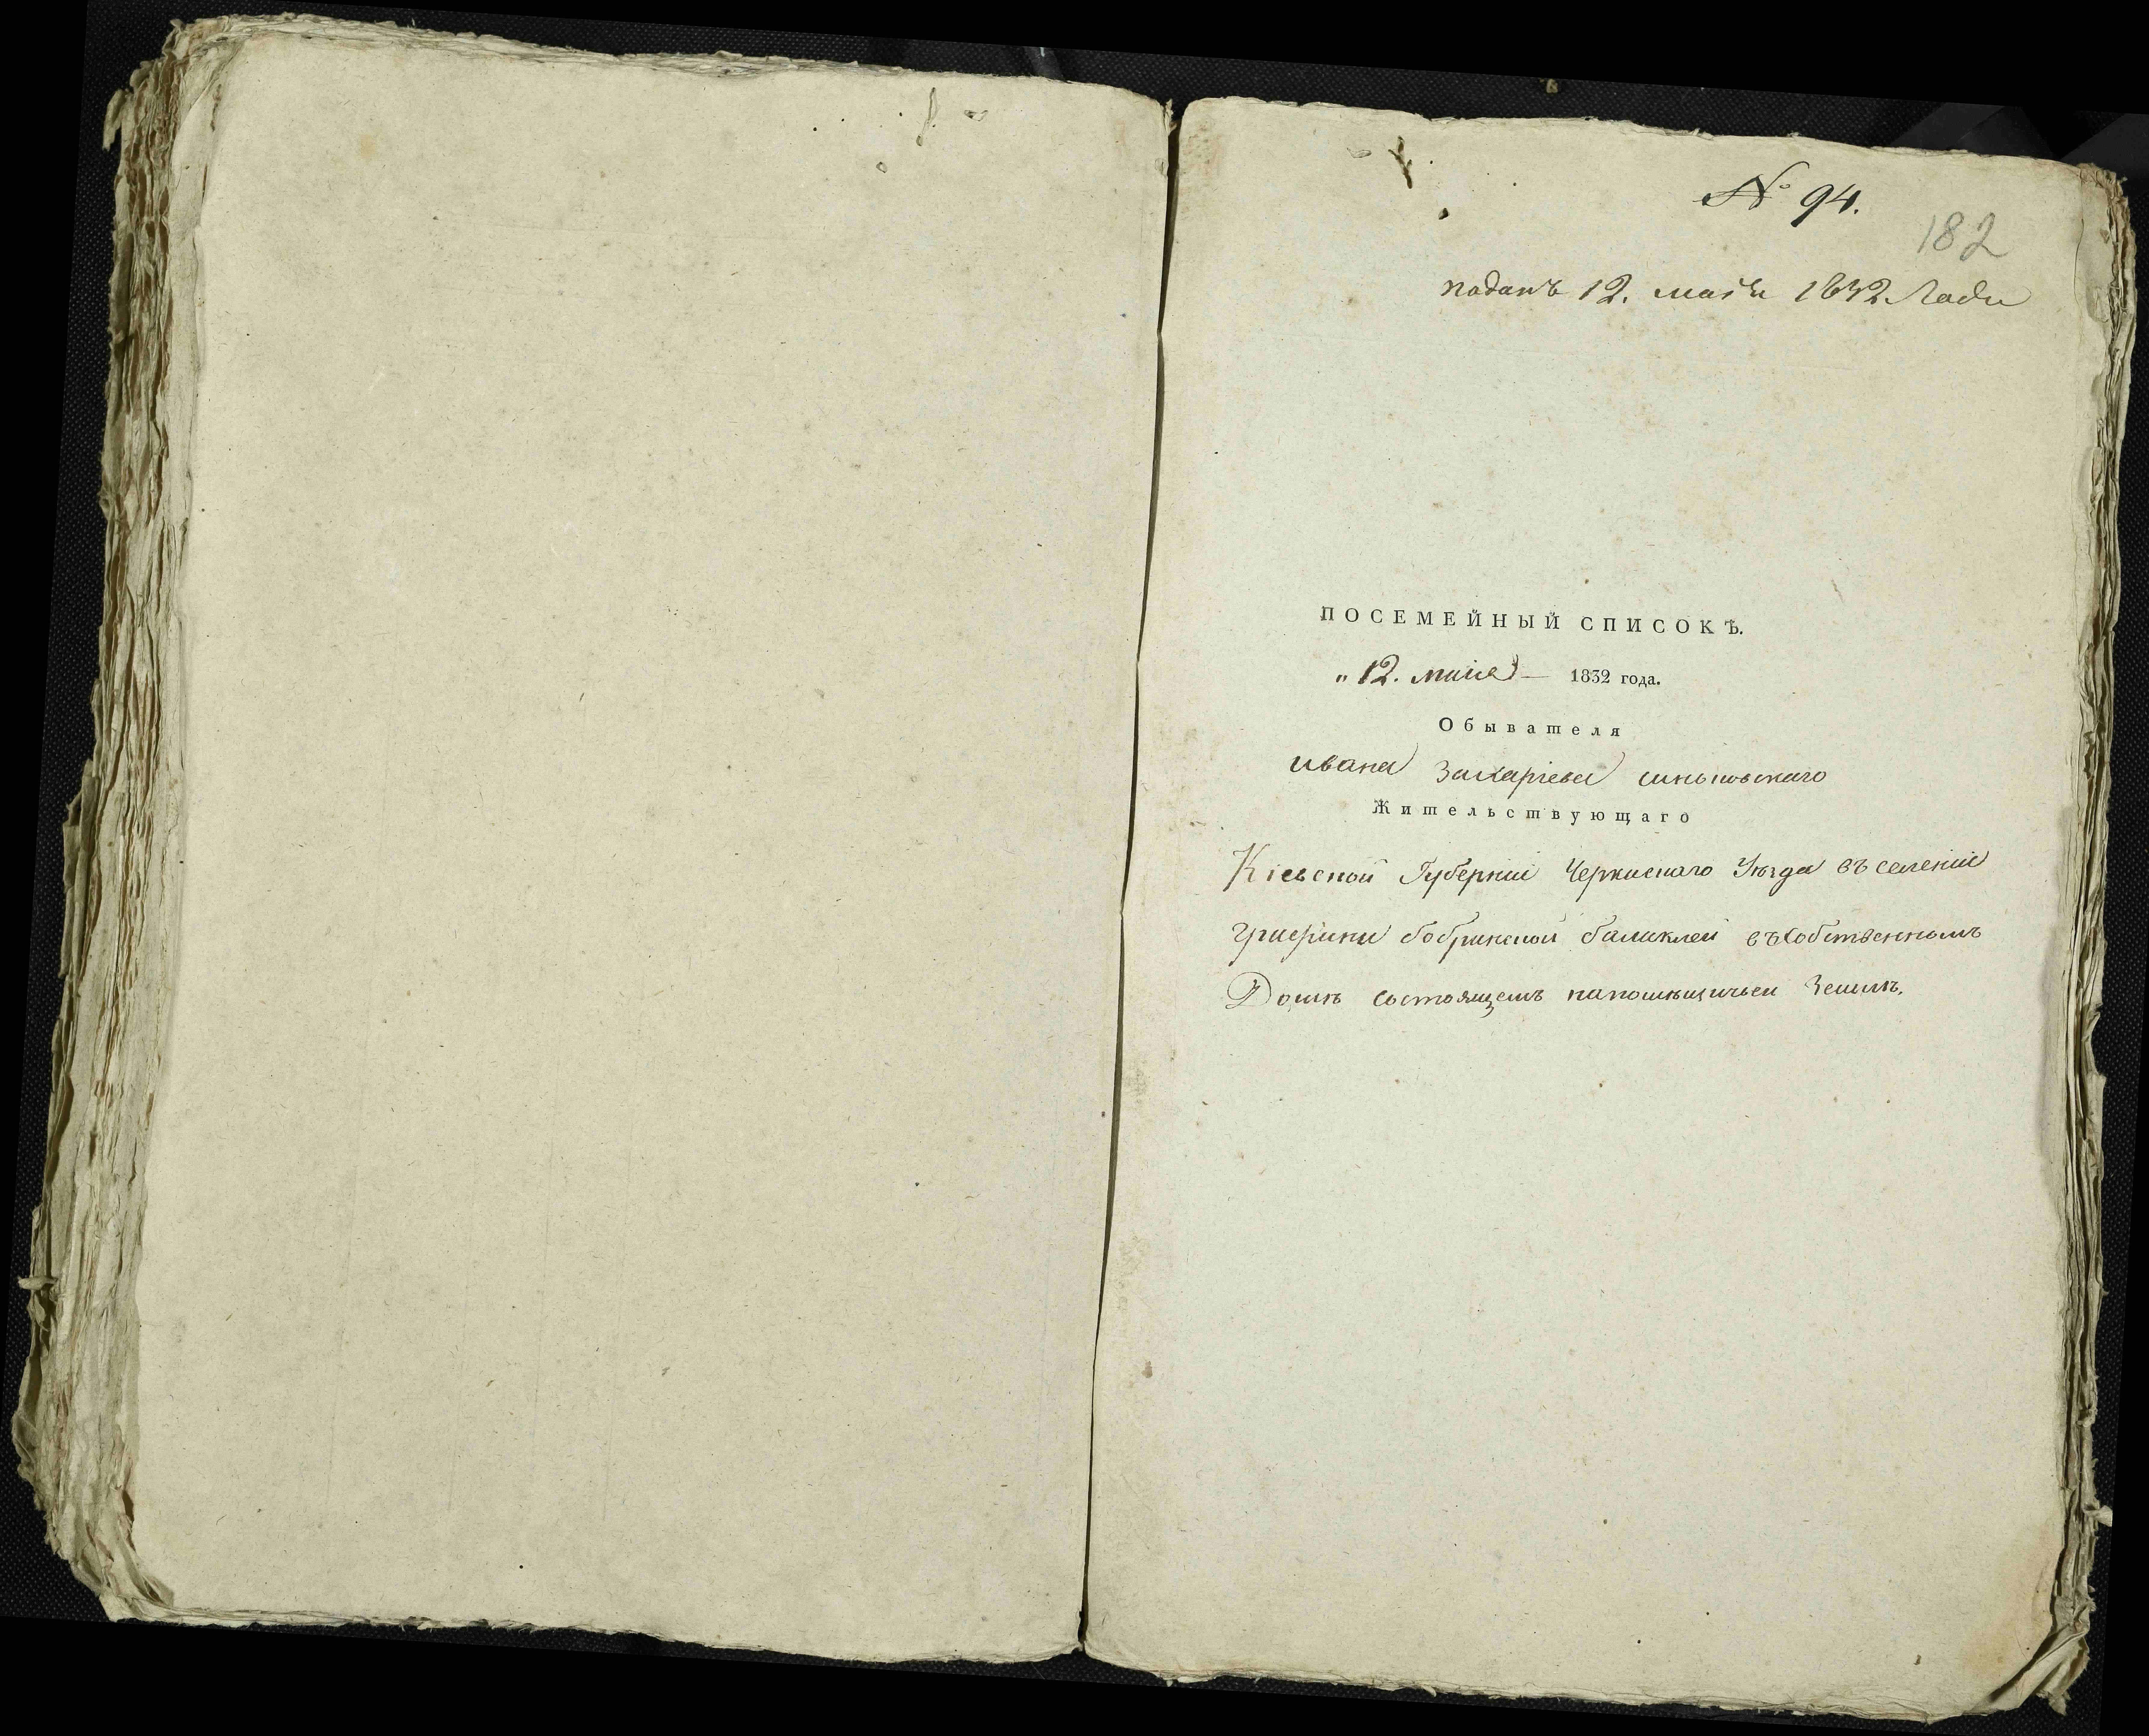 № 94.
182
поданъ 12. маія 1832 Года
ПОСЕМЕЙНЫЙ СПИСОКЪ.
„ 12. маія — 1832 года.
Обывателя
ивана Захаріева
Жительствующаго
Кіевской Губерніи Черкаскаго Уѣзда въ селеніи
графини бобринской балаклеи въ Собственномъ
Домѣ состоящемъ напомѣщичьей Землѣ.